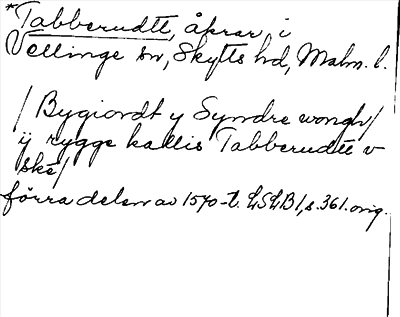 *Tabberudtt, åkrar i
Vellinge sn, Skytts hd, Malm. l.
/Bygiordt y Syndre wongh/
ij rygge kallis Tabberudtt v
ské/
förra delen av 1570-t. LSLB1, s. 361. orig.